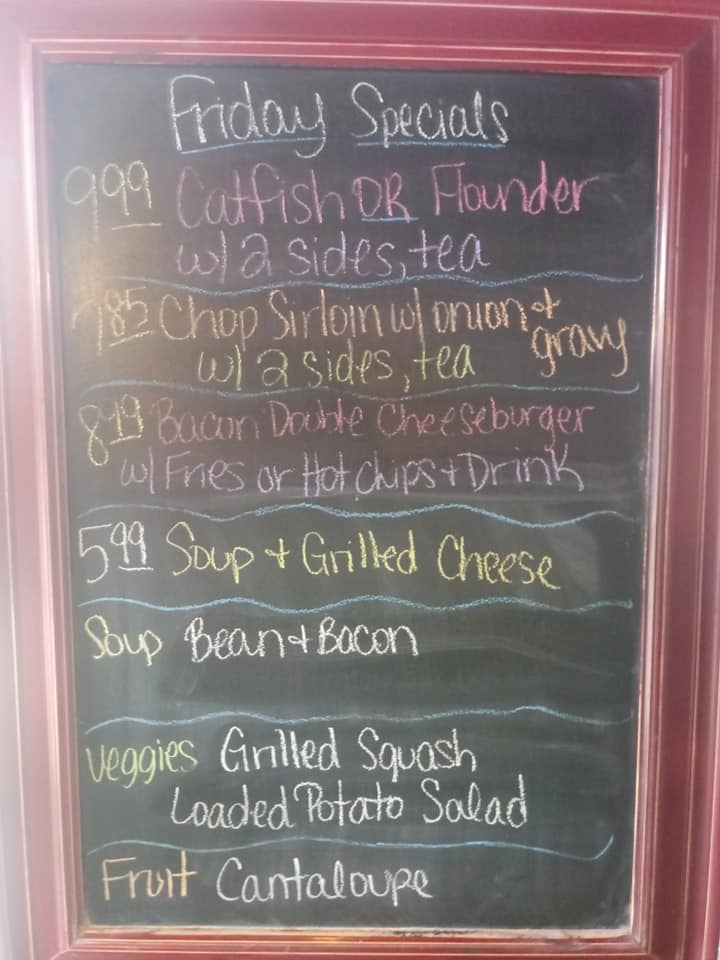 Friday Specials
9.99 Catfish OR Flounder
w/ 2 sides, tea
7.85 Chop Sirloin w/ onion + gravy
w/ 2 sides, tea
8.49 Bacon Double Cheeseburger
w/ Fries or Hot chips + Drink
5.99 Soup + Grilled Cheese
Soup Bean + Bacon
Veggies Grilled Squash
Loaded Potato Salad
Fruit Cantaloupe